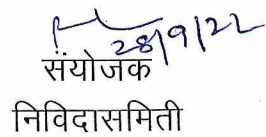 28/9/22
संयोजक
निविदासमिती